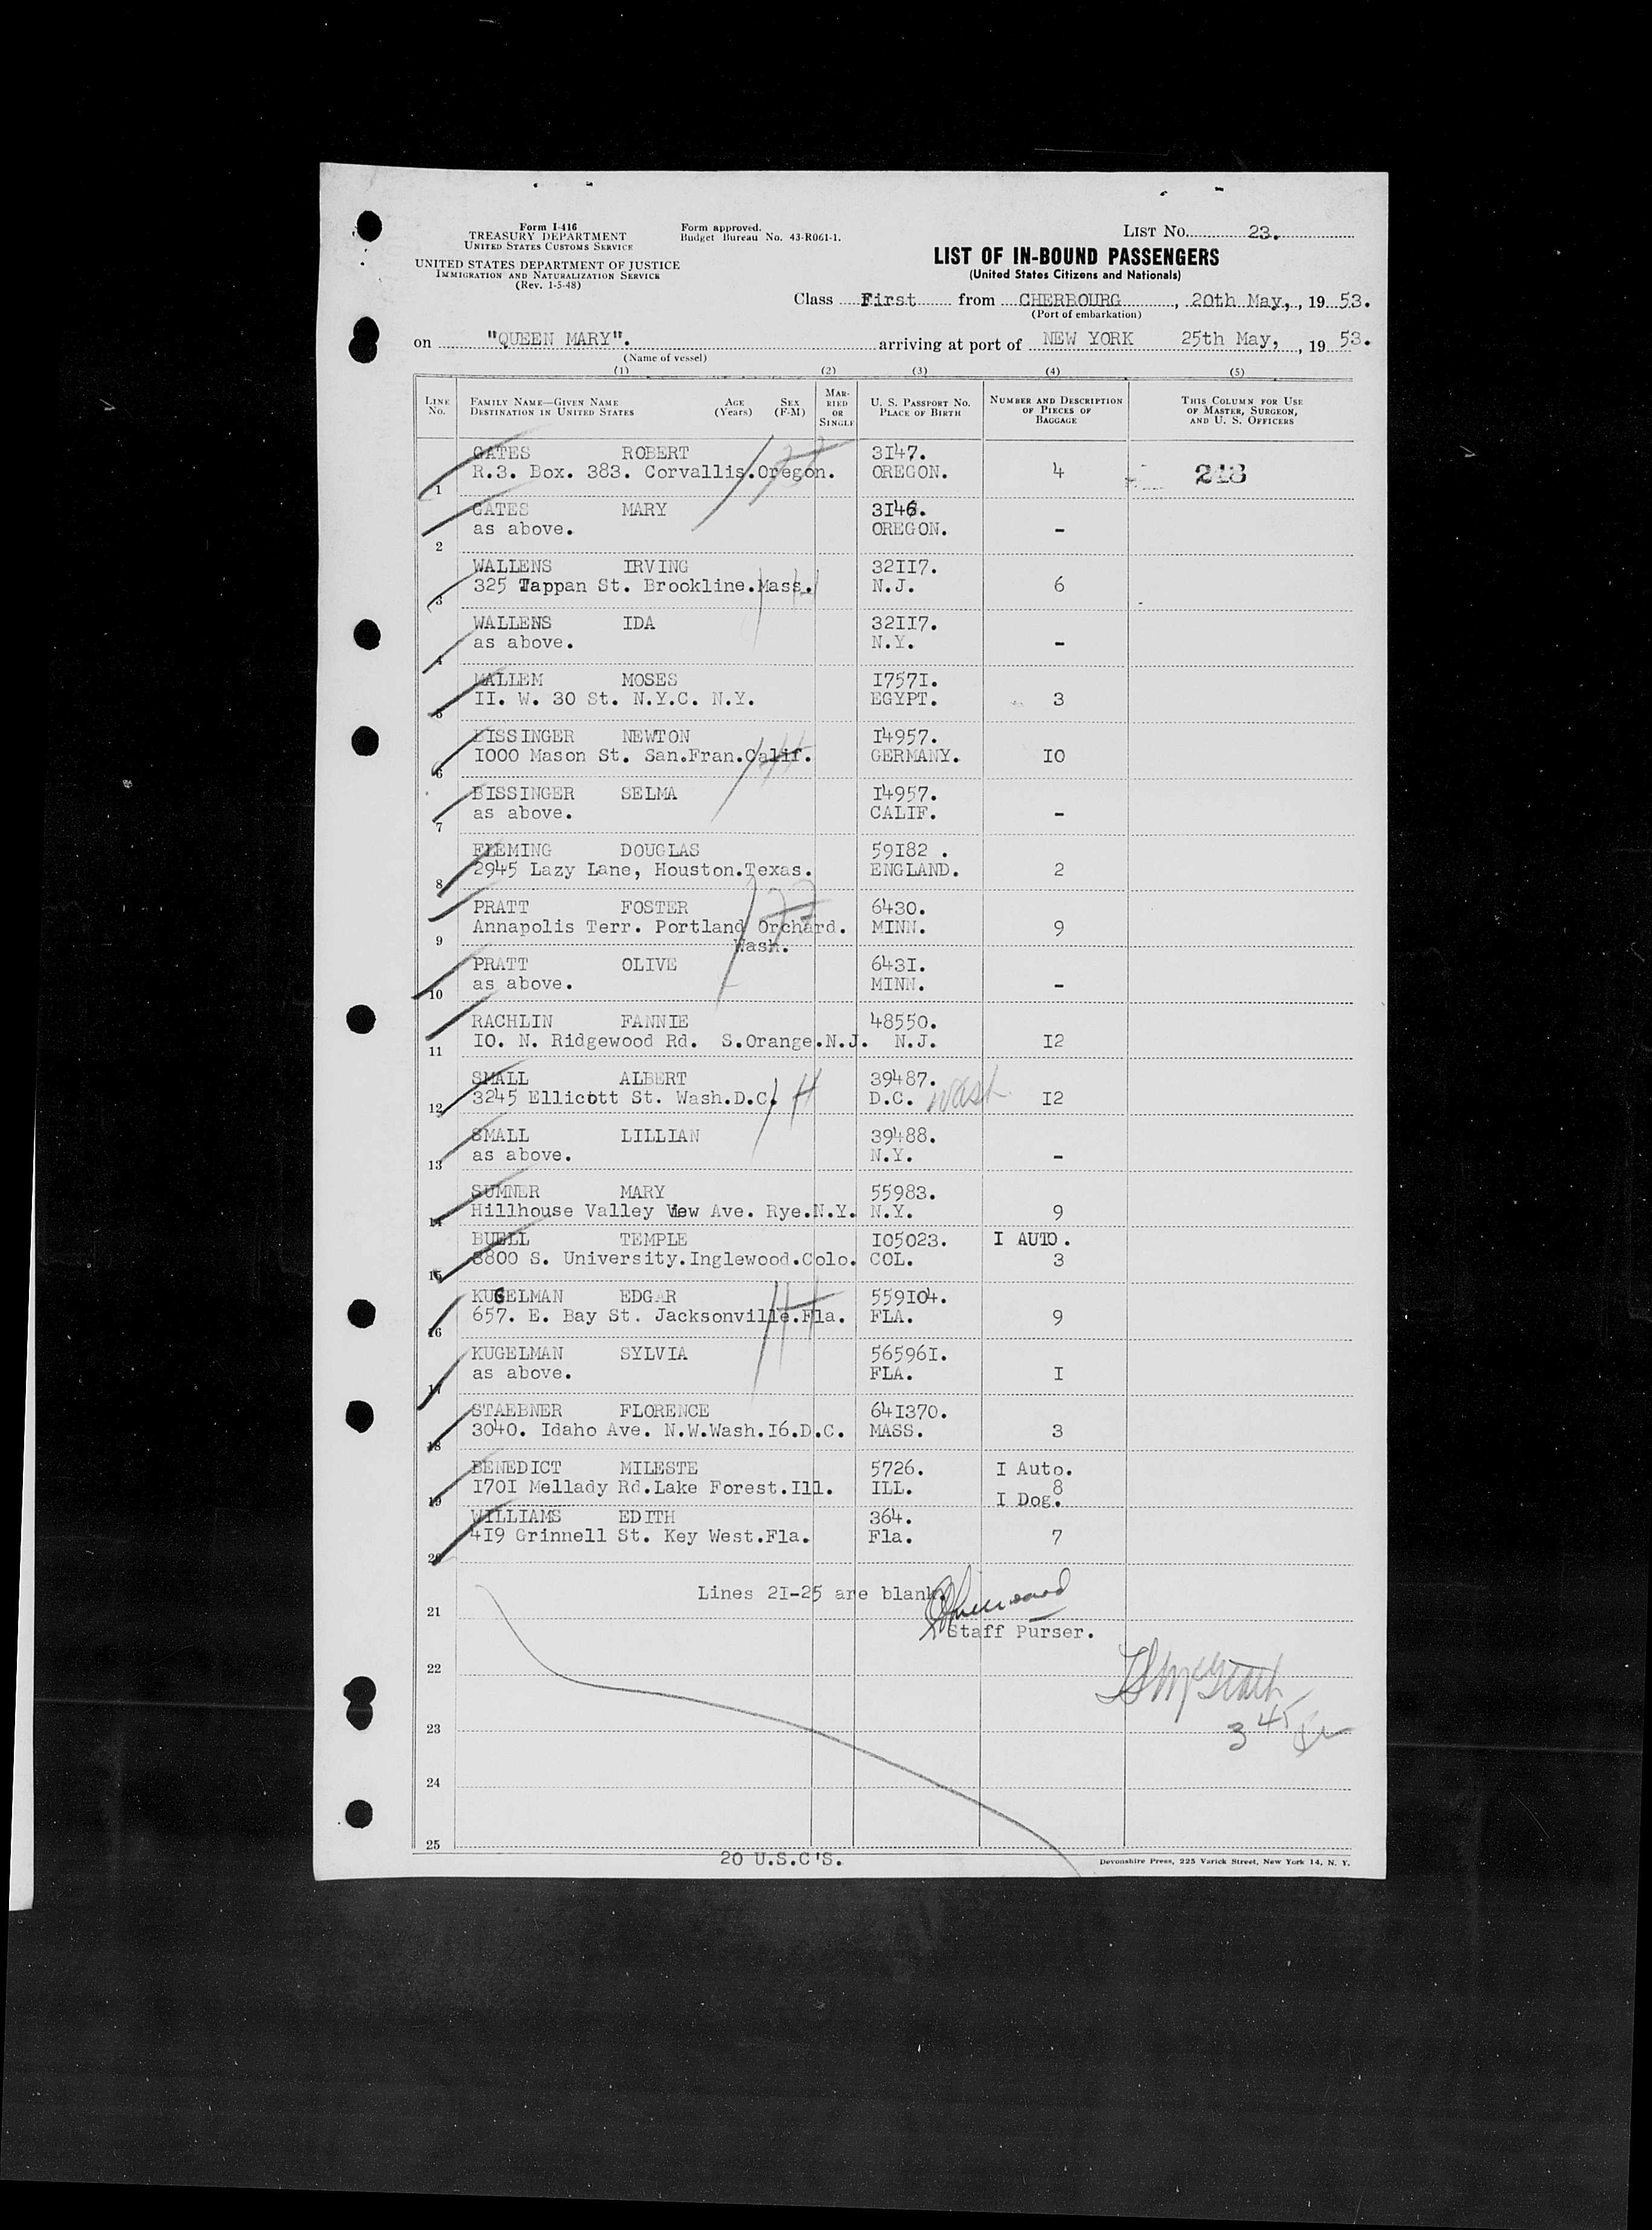 Form I-416
TREASURY DEPARTMENT
UNITED STATES CUSTOMS SERVICE
UNITED STATES DEPARTMENT OF JUSTICE
IMMIGRATION AND NATURALIZATION SERVICE
(Rev. 1-5-48)
Form approved.
Budget Bureau No. 43-R061-1.
LIST No. 23.
LIST OF IN-BOUND PASSENGERS
(United States Citizens and Nationals)
Class First from CHERBOURG, 20th May, 19 53.
(Port of embarkation)
on "QUEEN MARY". arriving at port of NEW YORK 25th May, 19 53.
(Name of vessel)
(1) (2) (3) (4) (5)
LINE No. FAMILY NAME—GIVEN NAME DESTINATION IN UNITED STATES AGE (Years) SEX (F-M) MARRIED OR SINGLE U. S. PASSPORT NO. PLACE OF BIRTH NUMBER AND DESCRIPTION OF PIECES OF BAGGAGE THIS COLUMN FOR USE OF MASTER, SURGEON, AND U. S. OFFICERS
GATES ROBERT 3I47.
1 R.3. Box. 383. Corvallis.Oregon. OREGON. 4 248
GATES MARY 3I46.
2 as above. OREGON. -
WALLENS IRVING 32II7.
3 325 Tappan St. Brookline.Mass. N.J. 6
WALLENS IDA 32II7.
4 as above. N.Y. -
MALLEM MOSES I757I.
5 II. W. 30 St. N.Y.C. N.Y. EGYPT. 3
BISSINGER NEWTON I4957.
6 I000 Mason St. San.Fran.Calif. GERMANY. I0
BISSINGER SELMA I4957.
7 as above. CALIF. -
FLEMING DOUGLAS 59I82 .
8 2945 Lazy Lane, Houston.Texas. ENGLAND. 2
PRATT FOSTER 6430.
9 Annapolis Terr. Portland Orchard. MINN. 9
Wash.
PRATT OLIVE 643I.
10 as above. MINN. -
RACHLIN FANNIE 48550.
11 I0. N. Ridgewood Rd. S.Orange.N.J. N.J. I2
SMALL ALBERT 39487.
12 3245 Ellicott St. Wash.D.C. H D.C. Wash I2
SMALL LILLIAN 39488.
13 as above. N.Y. -
SUMNER MARY 55983.
14 Hillhouse Valley View Ave. Rye.N.Y. N.Y. 9
BUELL TEMPLE I05023. I AUTO.
15 8800 S. University.Inglewood.Colo. COL. 3
KUGELMAN EDGAR 559I04.
16 657. E. Bay St. Jacksonville.Fla. FLA. 9
KUGELMAN SYLVIA 56596I.
17 as above. FLA. I
STAEBNER FLORENCE 64I370.
18 3040. Idaho Ave. N.W.Wash.I6.D.C. MASS. 3
BENEDICT MILESTE 5726. I Auto.
19 I70I Mellady Rd.Lake Forest.Ill. ILL. 8
I Dog.
WILLIAMS EDITH 364.
20 4I9 Grinnell St. Key West.Fla. Fla. 7
Lines 2I-25 are blank.
21
Staff Purser.
22
23
3 45
24
25
20 U.S.C'S.
Devonshire Press, 225 Varick Street, New York 14, N. Y.